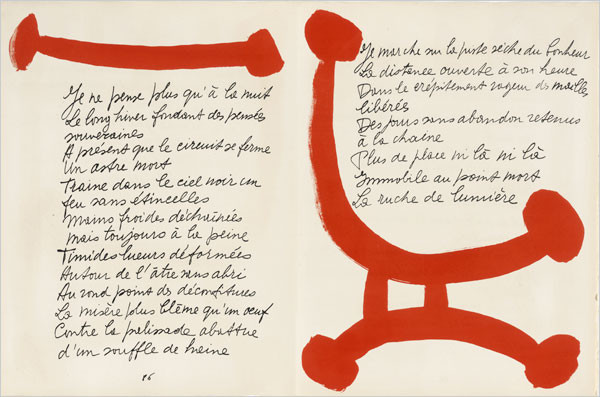 Je ne pense plus qu'à la nuit
Le long hiver fondant des pensées
souveraines
A présent que le circuit se ferme
Un astre mort
Traine dans le ciel noir un
feu sans étincelles
Mains froides déchaînées
mais toujours à la peine
Timides lueurs déformées
Autour de l'âtre sans abri
Au rond point des déconfitures
La misère plus blême qu'un oeuf
Contre la palissade abattue
d'un souffle de haine
96
Je marche sur la piste sèche du bonheur
La distance ouverte à son heure
Dans le crépitement rageur des mailles
libérées
Des jours sans abandon retenus
à la chaine
Plus de place ni là ni là
Immobile au point mort
La ruche de lumière